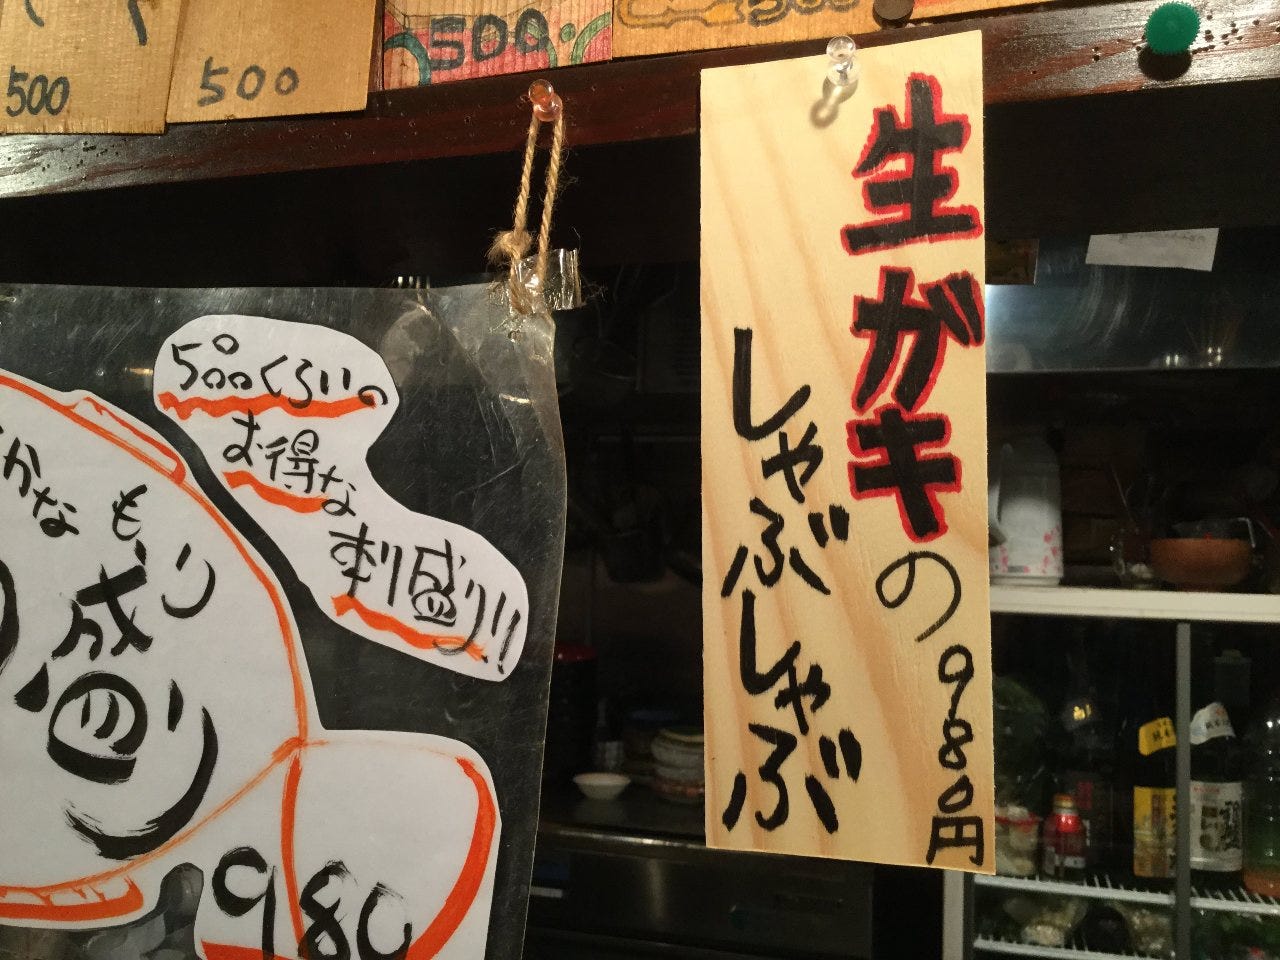 500
500
500
500
生ガキの980円
しゃぶしゃぶ
500くらいの
お得な
刺盛り!!
かな
もり
盛り
980